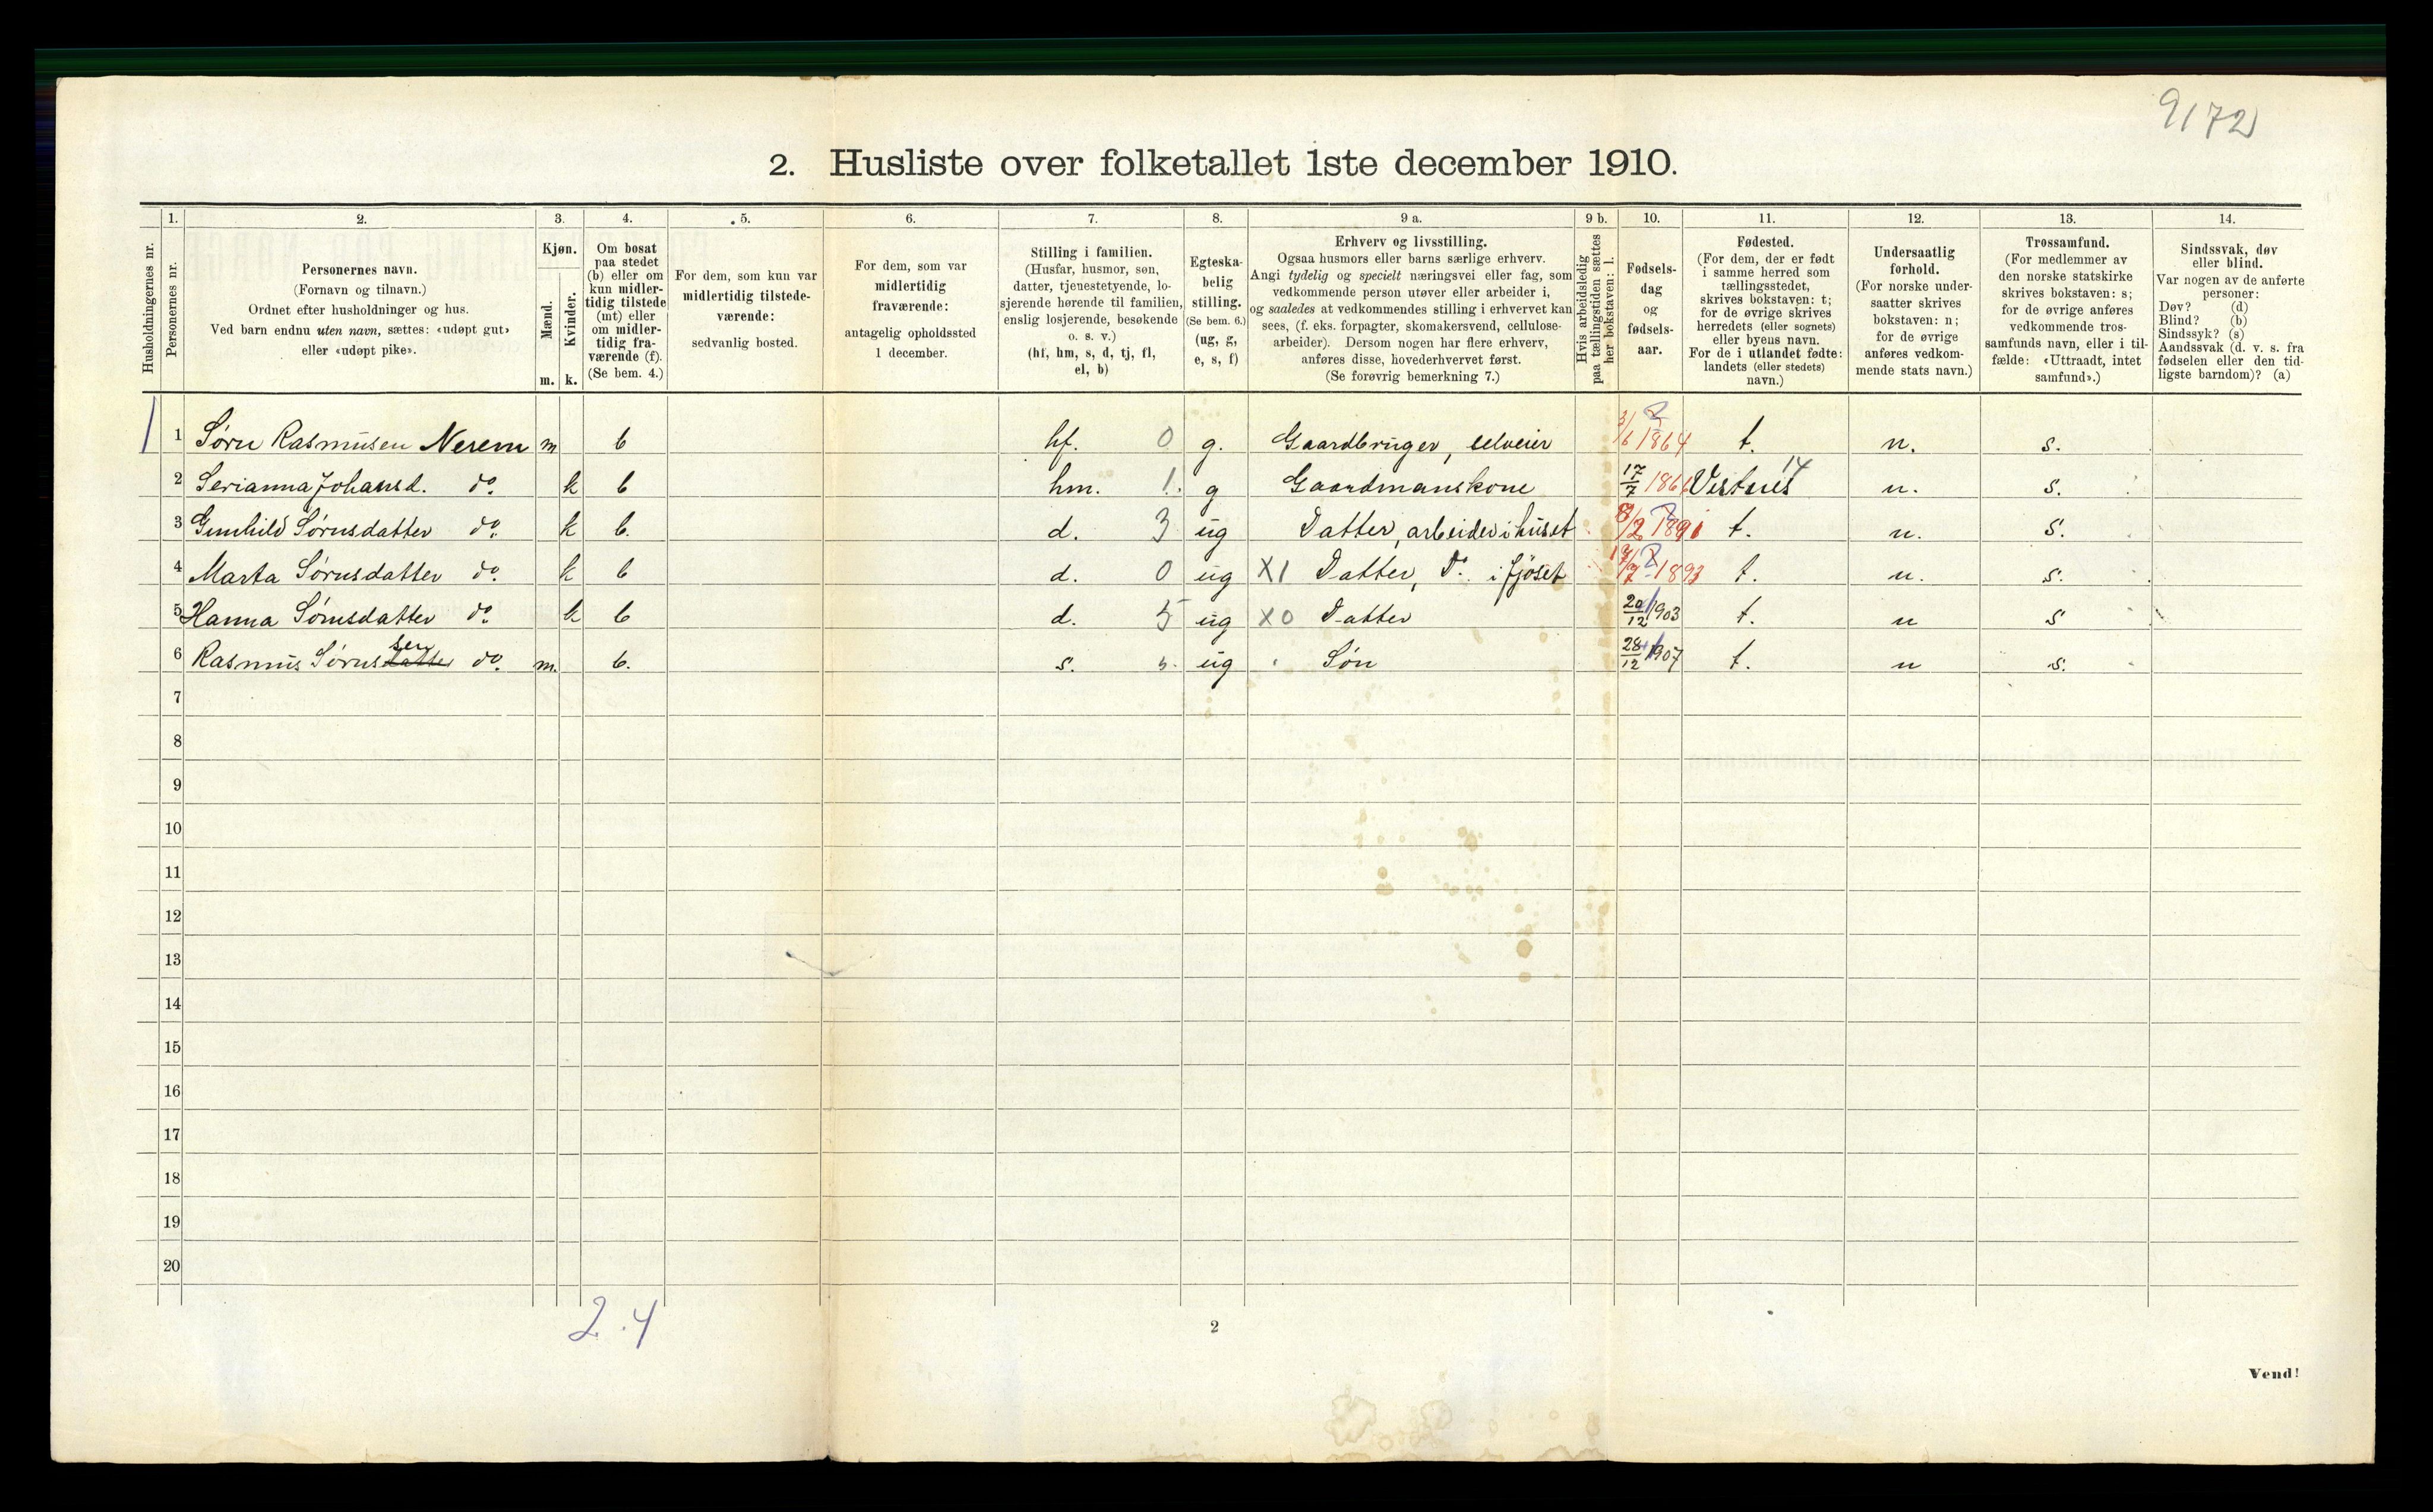 9172
2. Husliste over folketallet 1ste december 1910.
Husholdningernes nr.
1. Personernes nr.
2. Personernes navn. (Fornavn og tilnavn.) Ordnet efter husholdninger og hus. Ved barn endnu uten navn, sættes: «udøpt gut» eller «udøpt pike».
3. Kjøn. Mænd. m. Kvinder. k.
4. Om bosat paa stedet (b) eller om kun midler-tidig tilstede (mt) eller om midler-tidig fra-værende (f). (Se bem. 4.)
5. For dem, som kun var midlertidig tilstede-værende: sedvanlig bosted.
6. For dem, som var midlertidig fraværende: antagelig opholdssted 1 december.
7. Stilling i familien. (Husfar, husmor, søn, datter, tjenestetyende, lo-sjerende hørende til familien, enslig losjerende, besøkende o. s. v.) (hf, hm, s, d, tj, fl, el, b)
8. Egteska-belig stilling. (Se bem. 6.) (ug, g, e, s, f)
9 a. Erhverv og livsstilling. Ogsaa husmors eller barns særlige erhverv. Angi tydelig og specielt næringsvei eller fag, som vedkommende person utøver eller arbeider i, og saaledes at vedkommendes stilling i erhvervet kan sees, (f. eks. forpagter, skomakersvend, cellulose-arbeider). Dersom nogen har flere erhverv, anføres disse, hovederhvervet først. (Se forøvrig bemerkning 7.)
9 b. Hvis arbeidsledig paa tællingstiden sættes her bokstaven: l.
10. Fødsels-dag og fødsels-aar.
11. Fødested. (For dem, der er født i samme herred som tællingsstedet, skrives bokstaven: t; for de øvrige skrives herredets (eller sognets) eller byens navn. For de i utlandet fødte: landets (eller stedets) navn.)
12. Undersaatlig forhold. (For norske under-saatter skrives bokstaven: n; for de øvrige anføres vedkom-mende stats navn.)
13. Trossamfund. (For medlemmer av den norske statskirke skrives bokstaven: s; for de øvrige anføres vedkommende tros-samfunds navn, eller i til-fælde: «Uttraadt, intet samfund».)
14. Sindssvak, døv eller blind. Var nogen av de anførte personer: Døv? (d) Blind? (b) Sindssyk? (s) Aandssvak (d. v. s. fra fødselen eller den tid-ligste barndom)? (a)
1 1 Sørn Rasmusen Nerem m b hf. 0 g. Gaardbruger, selveier 3/6 1864 t. n. s.
2 Serianna Johansd. do. k b hm. 1. g Gaardmanskone 17/7 1861 Vestnes 14 n. s.
3 Gunhild Sørnsdatter do. k b. d. 3 ug Datter, arbeider i huset 8/2 1891 t. n. s.
4 Marta Sørnsdatter do. k b d. 0 ug X1 Datter, Do. i fjøset 1893 t. n. s.
5 Hanna Sørnsdatter do. k b d. 5 ug X0 Datter 20/12 1903 t. n s
6 Rasmus Sørnsdatter sen do. m. b. s. ug Søn 28/12 1907 t. n s.
7
8
9
10
11
12
13
14
15
16
17
18
19
20
2.4
2
Vend!